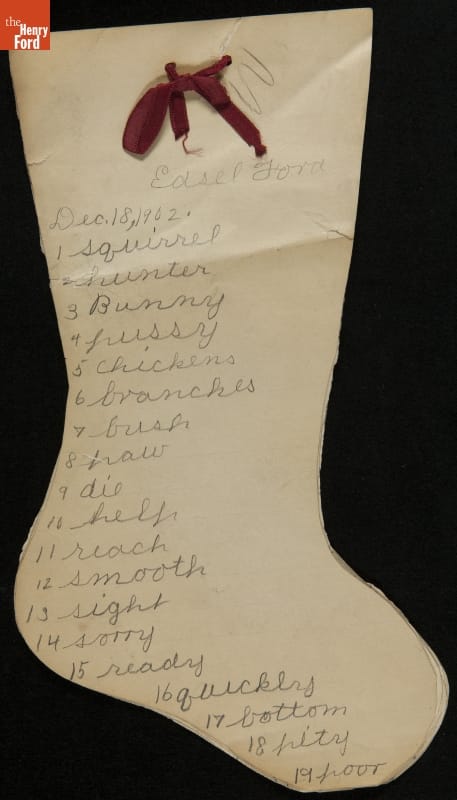 the
Henry
Ford
Edsel Ford
Dec. 18, 1902.
1 squirrel
2 hunter
3 Bunny
4 pussy
5 chickens
6 branches
7 bush
8 paw
9 die
10 help
11 reach
12 smooth
13 sight
14 sorry
15 ready
16 quickly
17 bottom
18 pity
19 poor